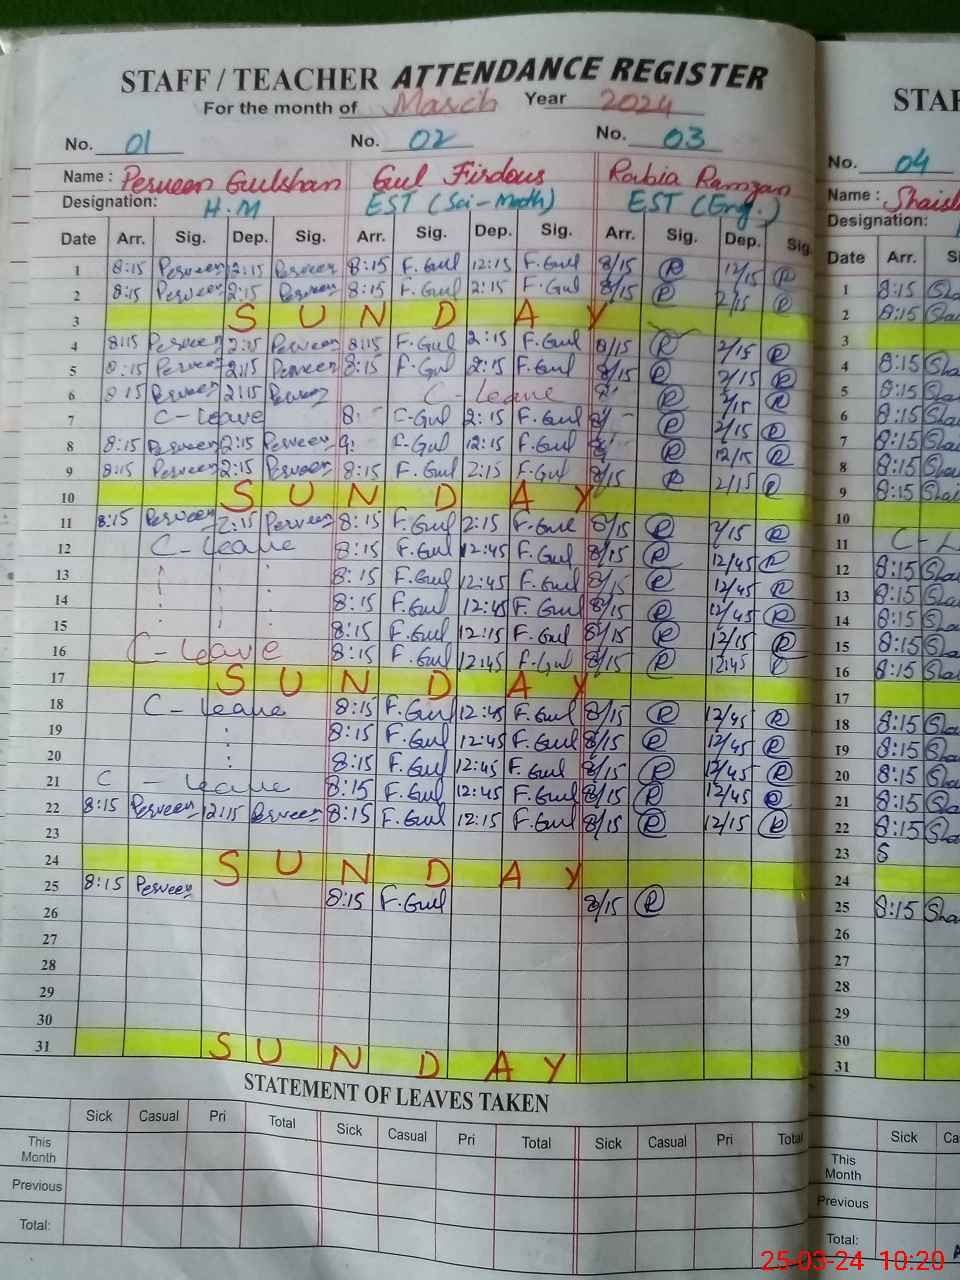 STAFF / TEACHER ATTENDANCE REGISTER STAF
For the month of March Year 2024
No. 01 No. 02 No. 03 No. 04
Name : Perveen Gulshan Gul Firdous Rabia Ramzan Name : Shaist
Designation: H.M EST (Sci-Math) EST (Eng.) Designation:
Date Arr. Sig. Dep. Sig. Arr. Sig. Dep. Sig. Arr. Sig. Dep. Sig. Date Arr. Si
1 8:15 Perveen 12:15 Perveen 8:15 F.Gul 12:15 F.Gul 8/15 R 12/15 R 1 8:15 Sha
2 8:15 Perveen 2:15 Perveen 8:15 F.Gul 2:15 F.Gul 8/15 R 2/15 R 2 8:15 Sha
3 SUNDAY 3
4 8:15 Perveen 2:15 Perveen 8:15 F.Gul 2:15 F.Gul 8/15 R 2/15 R 4 8:15 Sha
5 8:15 Perveen 2:15 Perveen 8:15 F.Gul 2:15 F.Gul 8/15 R 2/15 R 5 8:15 Sha
6 8:15 Perveen 2:15 Perveen C-Leave R 2/15 R 6 8:15 Sha
7 C-Leave 8: C-Gul 2:15 F.Gul 8/ R 2/15 R 7 8:15 Sha
8 8:15 Perveen 2:15 Perveen F.Gul 12:15 F.Gul R 12/15 R 8 8:15 Sha
9 8:15 Perveen 2:15 Perveen 8:15 F.Gul 2:15 F.Gul 8/15 R 2/15 R 9 8:15 Sha
10 SUNDAY 10
11 8:15 Perveen 2:15 Perveen 8:15 F.Gul 2:15 F.Gul 8/15 R 2/15 R 11 C-L
12 C-Leave 8:15 F.Gul 12:45 F.Gul 8/15 R 12/45 R 12 8:15 Sha
13 8:15 F.Gul 12:45 F.Gul 8/15 R 12/45 R 13 8:15 Sha
14 8:15 F.Gul 12:45 F.Gul 8/15 R 12/45 R 14 8:15 Sha
15 8:15 F.Gul 12:15 F.Gul 8/15 R 12/15 R 15 8:15 Sha
16 C-Leave 8:15 F.Gul 12:45 F.Gul 8/15 R 12:45 R 16 8:15 Sha
17 SUNDAY 17
18 C-Leave 8:15 F.Gul 12:45 F.Gul 8/15 R 12/45 R 18 8:15 Sha
19 8:15 F.Gul 12:45 F.Gul 8/15 R 12/45 R 19 8:15 Sha
20 8:15 F.Gul 12:45 F.Gul 8/15 R 12/45 R 20 8:15 Sha
21 C-Leave 8:15 F.Gul 12:45 F.Gul 8/15 R 12/45 R 21 8:15 Sha
22 8:15 Perveen 12:15 Perveen 8:15 F.Gul 12:15 F.Gul 8/15 R 12/15 R 22 8:15 Sha
23 23 S
24 SUNDAY 24
25 8:15 Perveen 8:15 F.Gul 8/15 R 25 8:15 Sha
26 26
27 27
28 28
29 29
30 30
31 SUNDAY 31
STATEMENT OF LEAVES TAKEN
Sick Casual Pri Total Sick Casual Pri Total Sick Casual Pri Total Sick Ca
This Month This Month
Previous Previous
Total: Total:
25-03-24 10:20